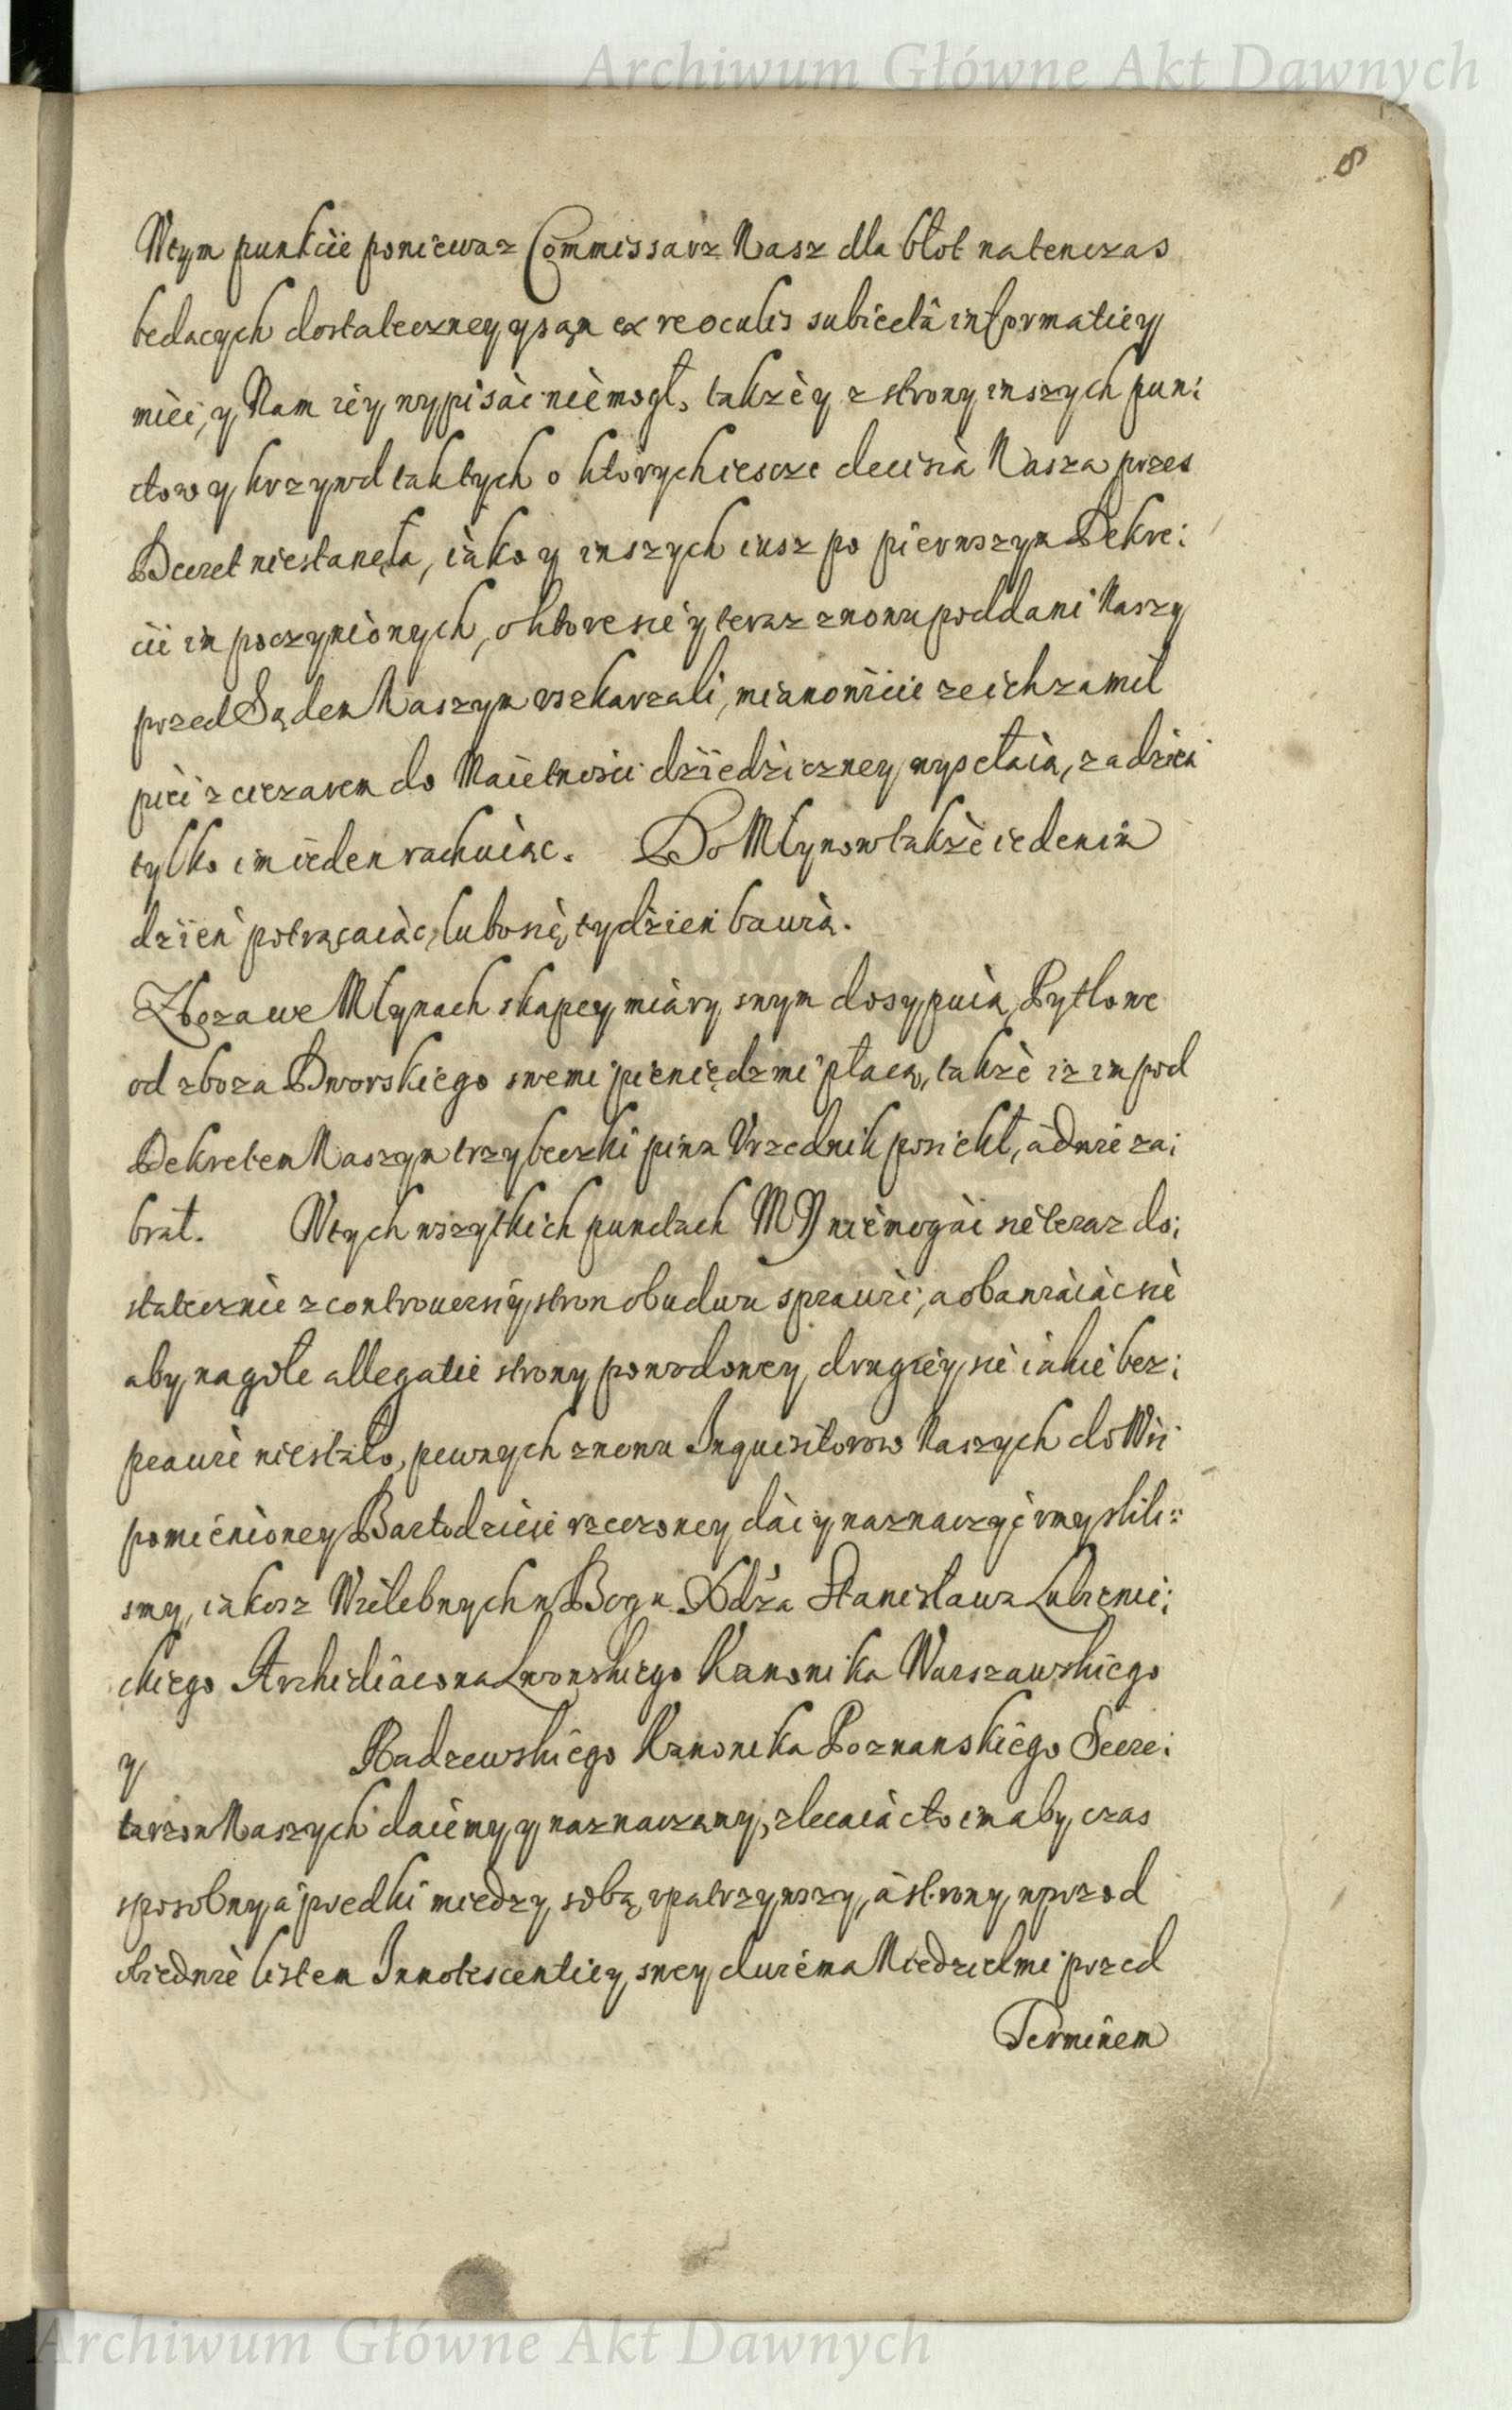 Archiwum Główne Akt Dawnych
8
Wtym punkcie poniewaz Commissarz Nasz dla błot natenczas
bedacych dostateczney y sam ex re oculis subiecta informatiey
mieć, y Nam iey wypisać niemogł, takze y z strony inszych pun:
ctow y krzywd taktych o ktorych iescze decisia Nasza przes
Decret niestanęła, iako y inszych iusz po pierwszym Dekre:
cie im poczynionych, o ktore sie y teraz znowu poddani Naszy
przed Sądem Naszym vskarzali, mianowicie ze ich za mil
pięć z ciezarem do Maietnosci dziedziczney wysełaią, za dzień
tylko im ieden rachuiąc. Do Młynow także ieden im
dzień potrącaiąc, lubo się tydzien bawią.
Zboza we Młynach skąpey miary swym dosypuią, Pytlowe
od zboza Dworskiego swemi pieniędzmi płacą, także iz im pod
Dekretem Naszym trzy beczki piwa Vrzednik posiekł, a dwie za:
brał. Wtych wszytkich punctach MY niemogąc sie teraz do:
statecznie z controuersiy stron obudwu sprawić, a obawiaiąc sie
aby nagołe allegatie strony powodowey drugiey sie iakie bez:
peawie niestało, pewnych znowu Inquisitorow Naszych do Wsi
pomienioney Bartodzieie rzeczoney dać y naznaczyć vmyslili:
smy, iakosz Wielebnych w Bogu Xdza Stanisława Lubienie:
ckiego Archidiacona Lwowskiego Kanonika Warszawskiego
y Radzewskiego Kanonika Poznanskiego Secre:
tarzow Naszych daiemy y naznaczamy, zlecaiąc to im aby czas
sposobny a prędki miedzy sobą vpatrzywszy, a strony wprzod
obiedwie listem Innotescentiey swey dwiema Niedzielmi przed
Terminem
Archiwum Główne Akt Dawnych